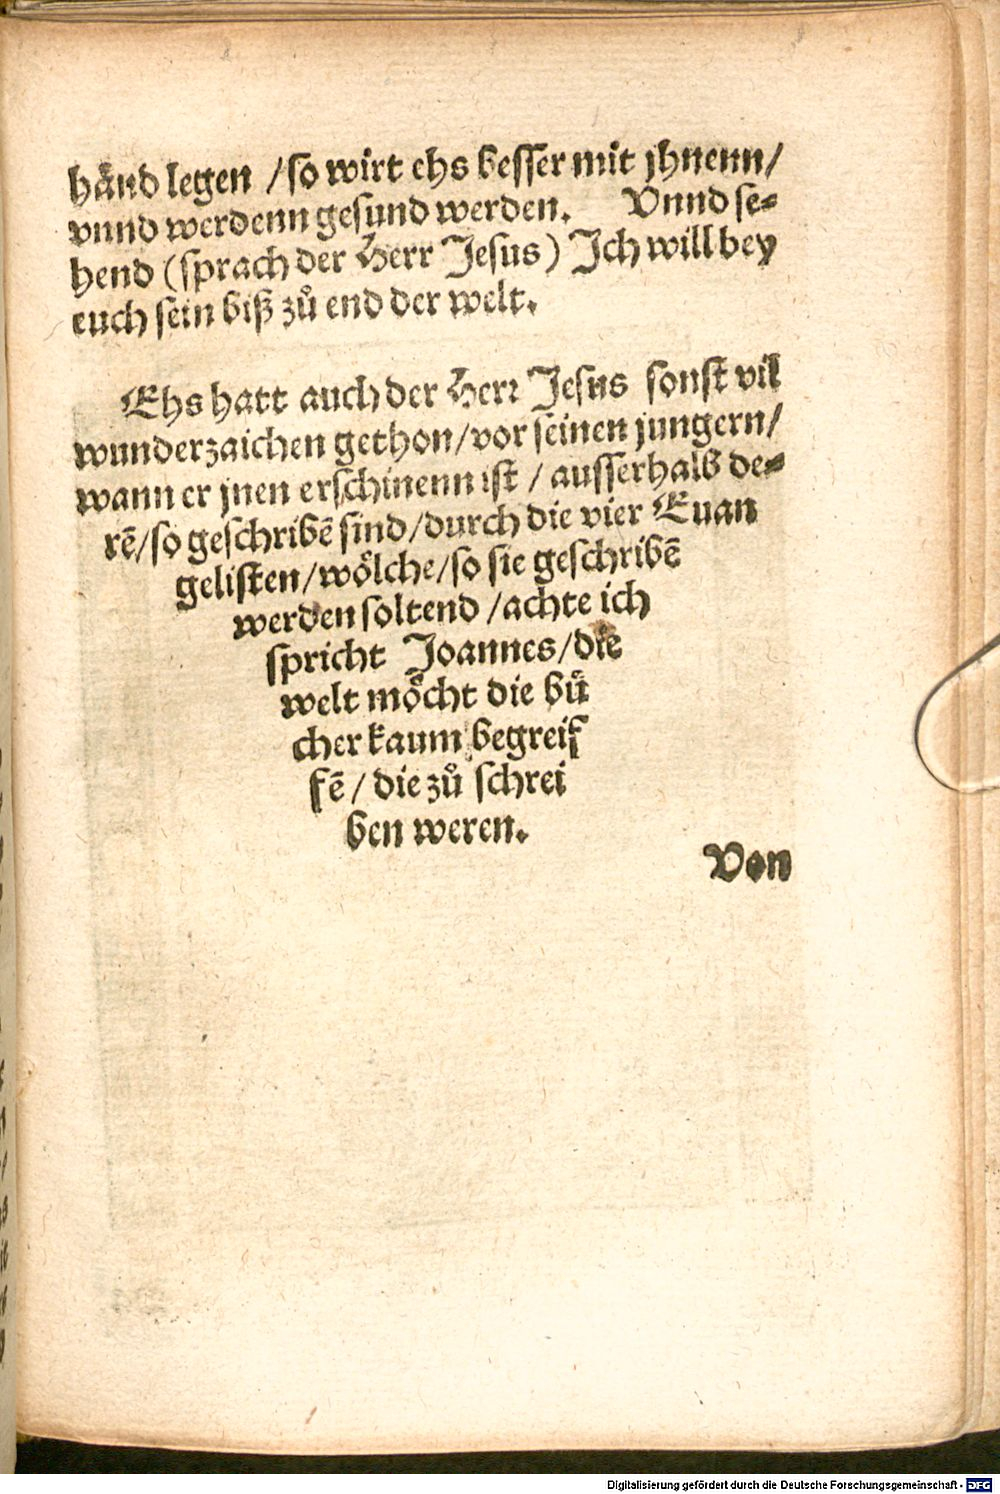 hånd legen /so wirt ehs besser mit jhnenn/
vnnd werdenn gesund werden. Vnnd se⸗
hend (sprach der Herr Jesus) Jch will bey
euch sein biß zů end der welt.
Ehs hatt auch der Herr Jesus sonst vil
wunderzaichen gethon/vor seinen jungern/
wann er jnen erschinenn ist / ausserhalb de⸗
rẽ/so geschribẽ sind/durch die vier Euan
gelisten/wölche/so sie geschribẽ
werden soltend /achte ich
spricht Joannes/die
welt möcht die bů
cher kaum begreif
fẽ/ die zů schrei
ben weren.
Von
Digitalisierung gefördert durch die Deutsche Forschungsgemeinschaft - DFG